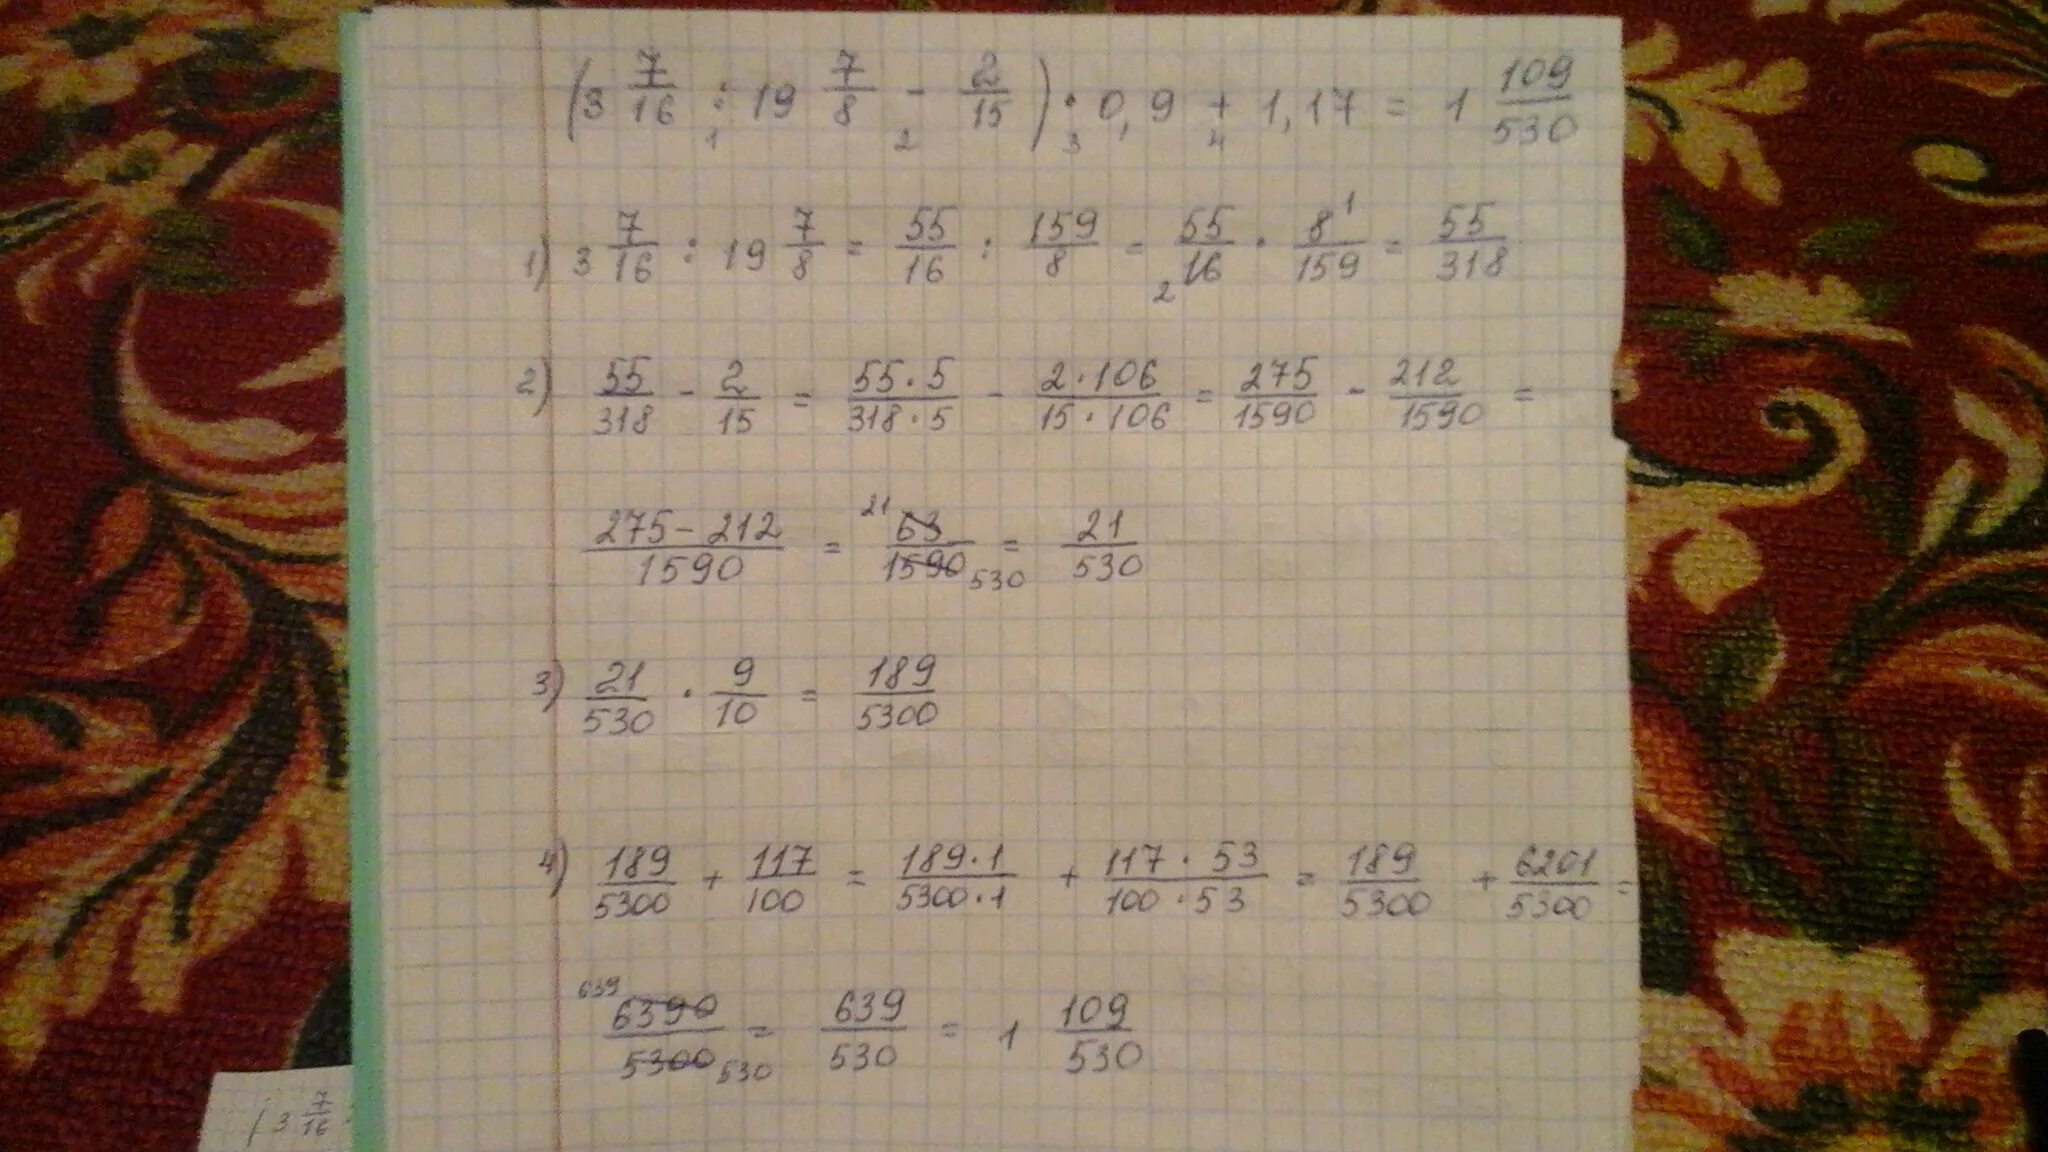 (3 7/16 : 19 7/8 - 2/15) · 0,9 + 1,17 = 1 109/530
1 2 3 4
1) 3 7/16 : 19 7/8 = 55/16 : 159/8 = 55/16 2 · 8 1/159 = 55/318
2) 55/318 - 2/15 = 55·5/318·5 - 2·106/15·106 = 275/1590 - 212/1590 =
275-212/1590 = 21 63/1590 530 = 21/530
3) 21/530 · 9/10 = 189/5300
4) 189/5300 + 117/100 = 189·1/5300·1 + 117·53/100·53 = 189/5300 + 6201/5300 =
639 6390/5300 530 = 639/530 = 1 109/530
(3 7/16 :